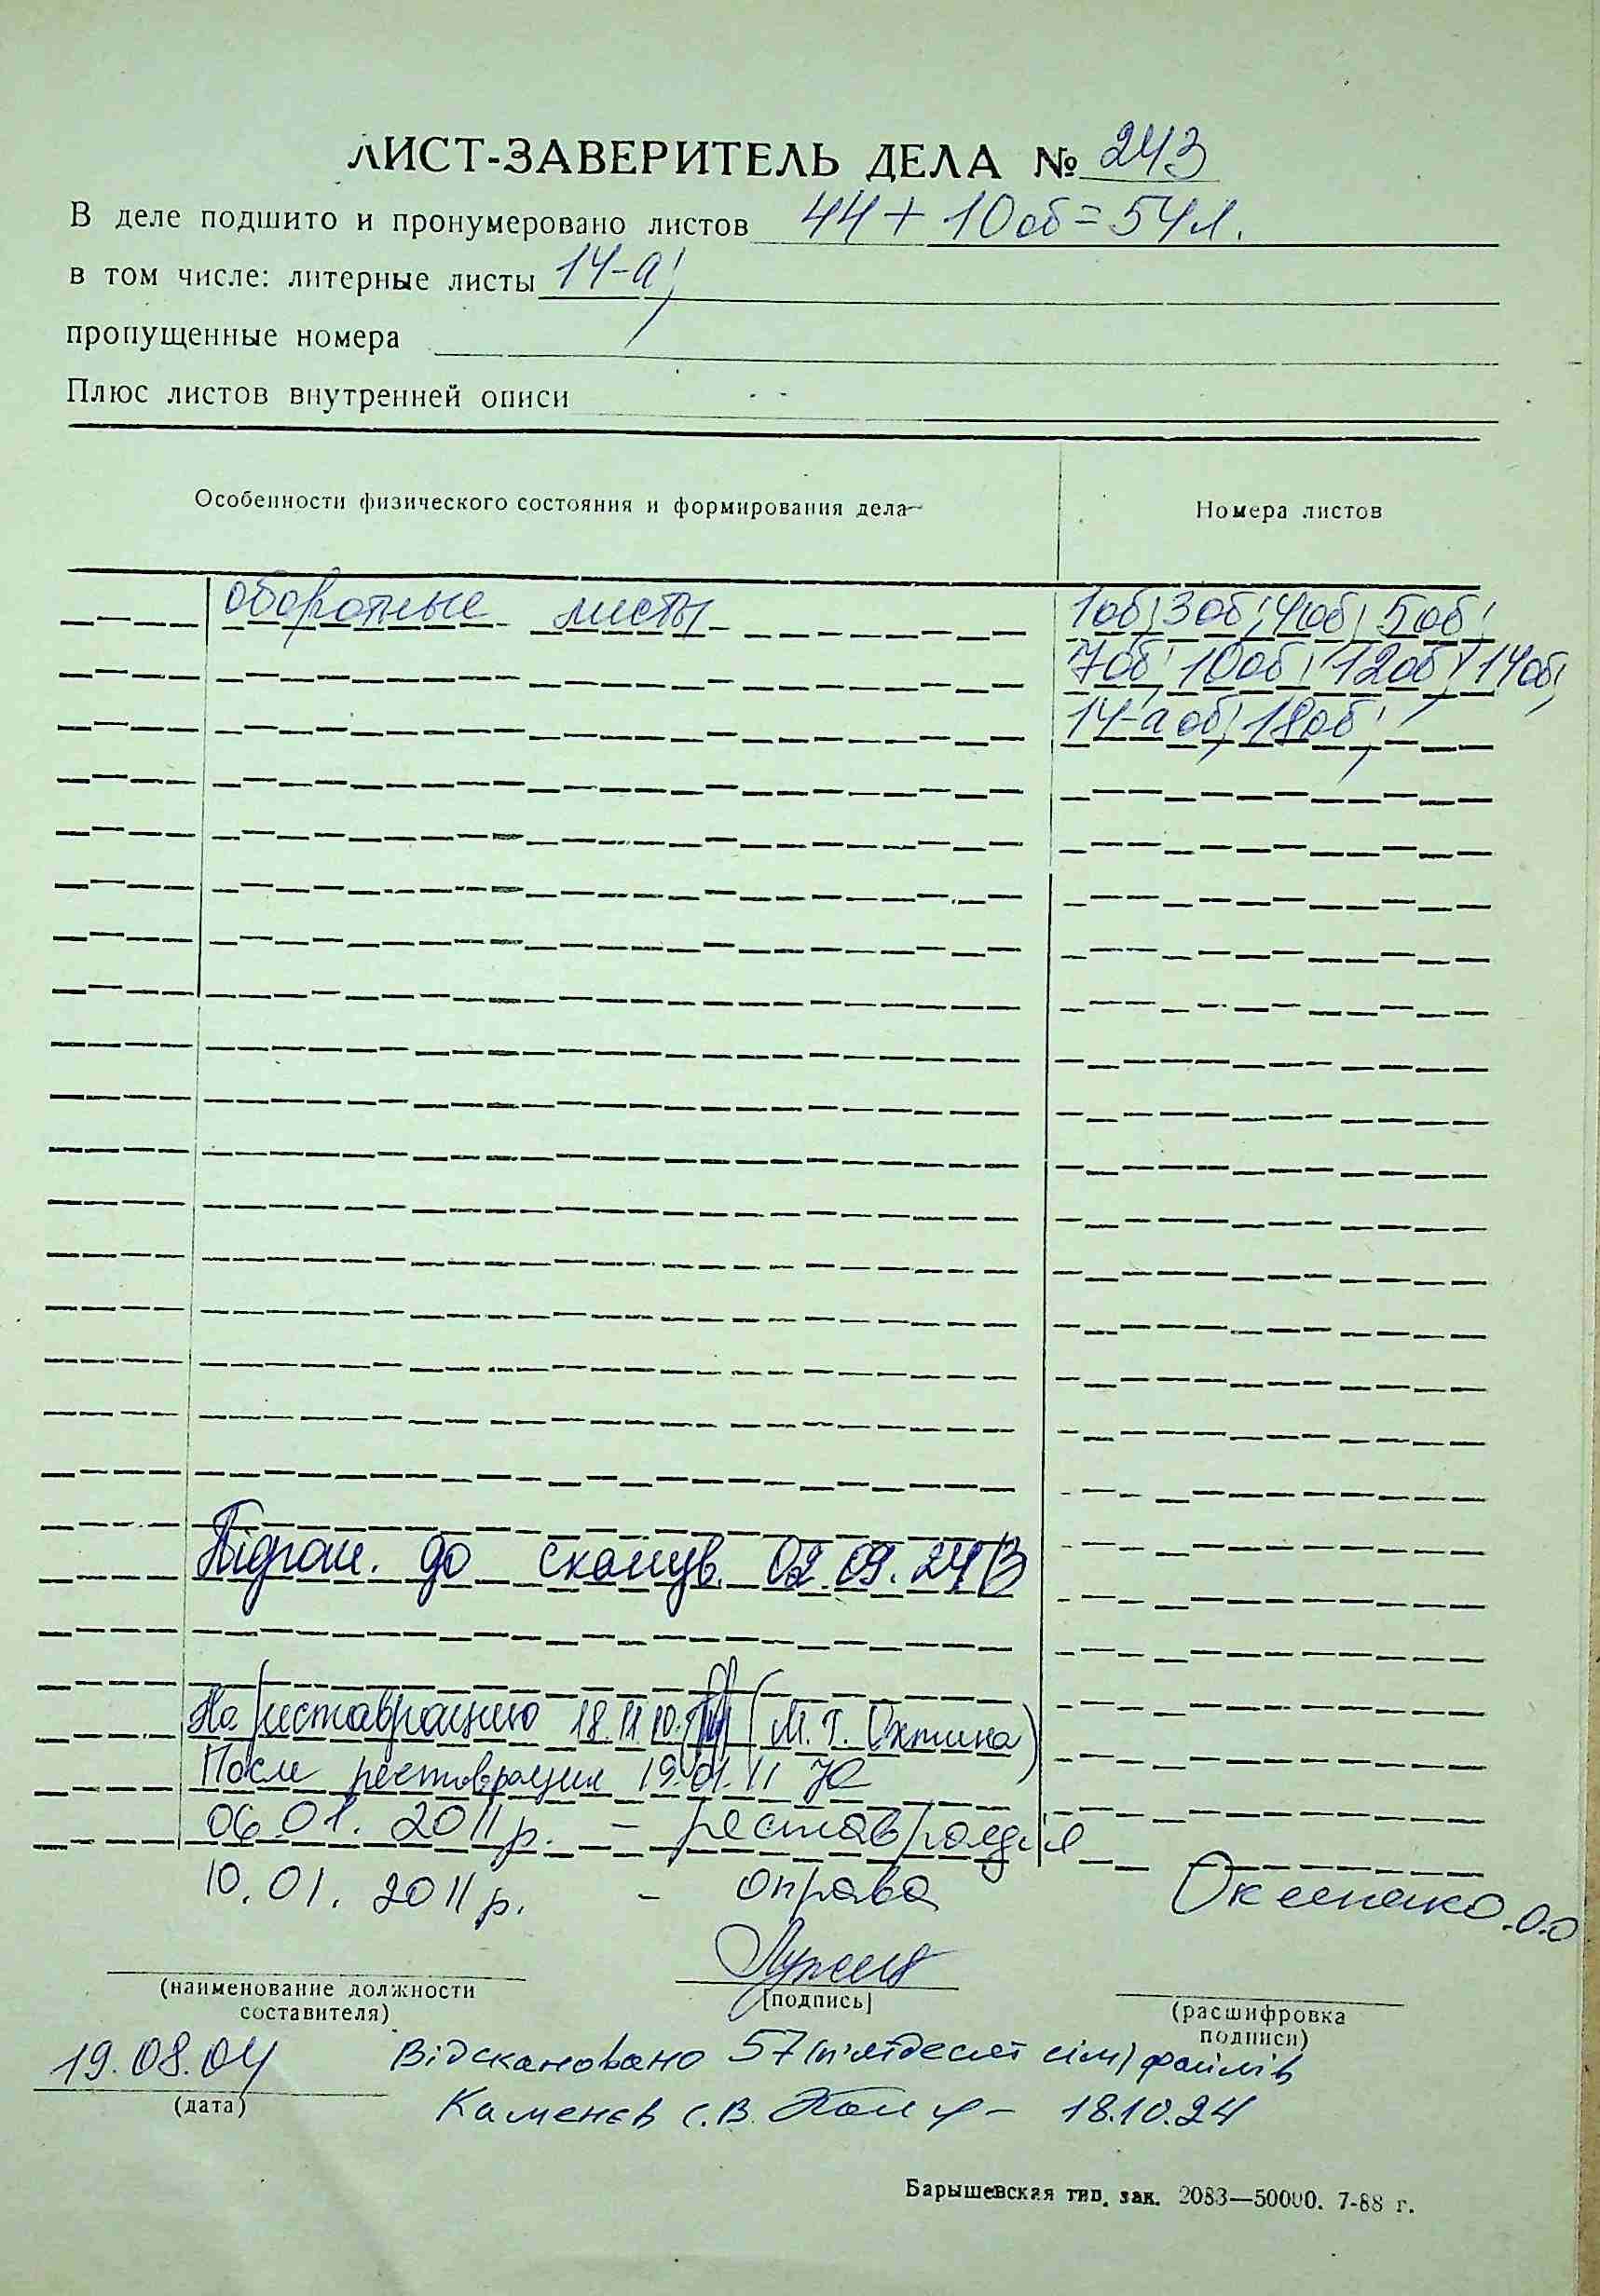 ЛИСТ-ЗАВЕРИТЕЛЬ ДЕЛА № 243
В деле подшито и пронумеровано листов 44 + 10об = 54л.
в том числе: литерные листы 14-а;
пропущенные номера
Плюс листов внутренней описи
Особенности физического состояния и формирования дела
Номера листов
оборотные листы 1об; 3об; 4об; 5об;
7об; 10об; 12об; 14об;
14-а об; 18об;
Підгот. до сканув. 02.09.24
На реставрацию 18.11.10. (М. Г. Охтина)
После реставрации 19.01.11
06.01. 2011р. - реставрация
10.01. 2011р. - оправа
(наименование должности
составителя)
[подпись]
(расшифровка
подписи)
19.08.04
(дата)
Відскановано 57 (п'ятдесят сім) файлів
Каменєв С.В. 18.10.24
Барышевская тип. зак. 2083—50000. 7-88 г.